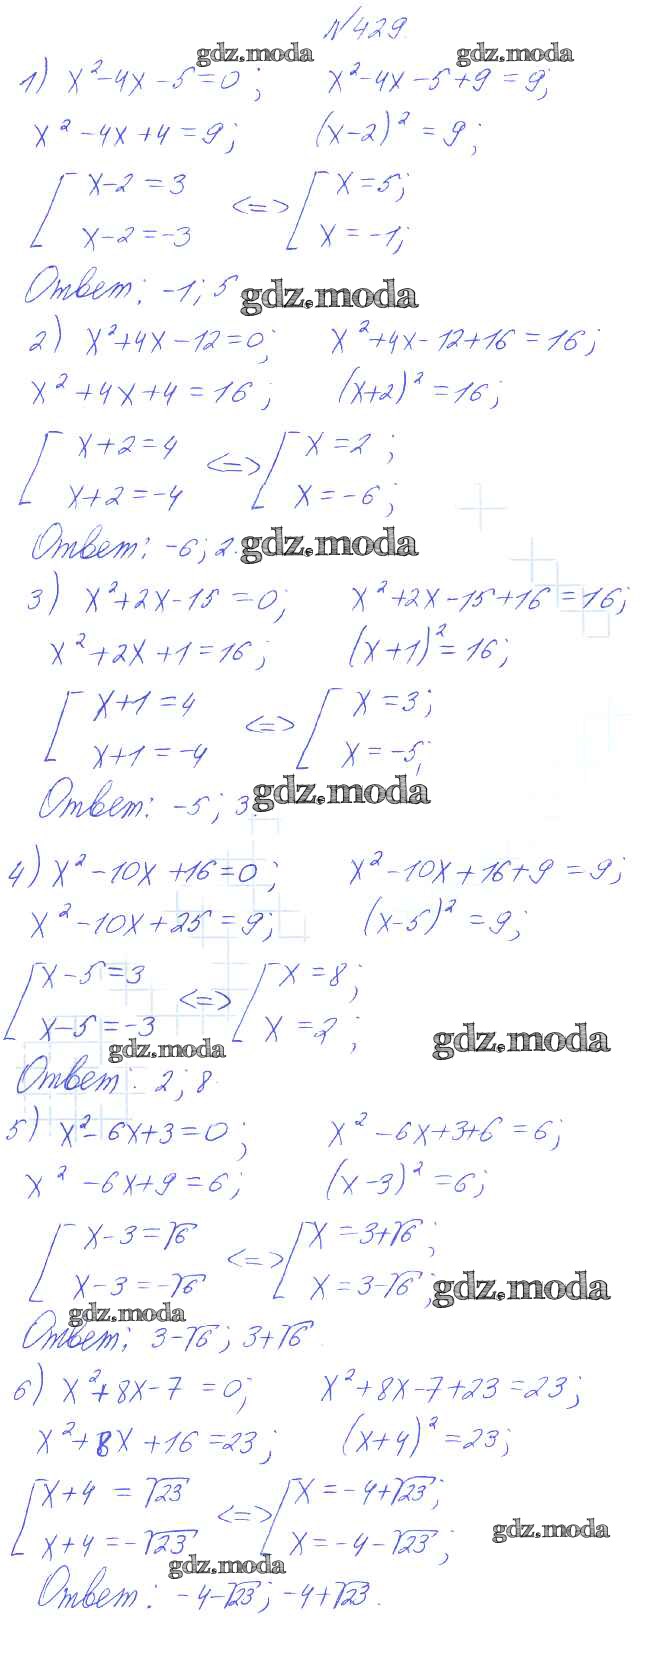 №429.
gdz.moda gdz.moda
1) x²-4x-5=0; x²-4x-5+9=9;
x²-4x+4=9; (x-2)²=9;
[ x-2=3 <=> [ x=5;
x-2=-3 x=-1;
Ответ: -1; 5 gdz.moda
2) x²+4x-12=0; x²+4x-12+16=16;
x²+4x+4=16; (x+2)²=16;
[ x+2=4 <=> [ x=2;
x+2=-4 x=-6;
Ответ: -6; 2. gdz.moda
3) x²+2x-15=0; x²+2x-15+16=16;
x²+2x+1=16; (x+1)²=16;
[ x+1=4 <=> [ x=3;
x+1=-4 x=-5;
Ответ: -5; 3. gdz.moda
4) x²-10x+16=0; x²-10x+16+9=9;
x²-10x+25=9; (x-5)²=9;
[ x-5=3 <=> [ x=8;
x-5=-3 x=2;
gdz.moda gdz.moda
Ответ: 2; 8.
5) x²-6x+3=0; x²-6x+3+6=6;
x²-6x+9=6; (x-3)²=6;
[ x-3=√6 <=> [ x=3+√6;
x-3=-√6 x=3-√6; gdz.moda
gdz.moda
Ответ: 3-√6; 3+√6.
6) x²+8x-7=0; x²+8x-7+23=23;
x²+8x+16=23; (x+4)²=23;
[ x+4=√23 <=> [ x=-4+√23;
x+4=-√23 x=-4-√23; gdz.moda
gdz.moda
Ответ: -4-√23; -4+√23.